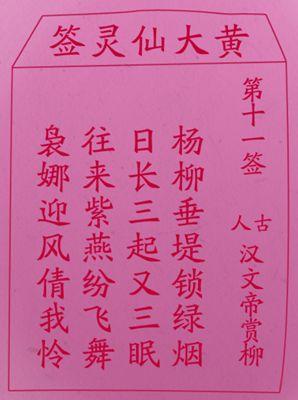 黄大仙灵签
第十一签
古人 汉文帝赏柳
杨柳垂堤锁绿烟
日长三起又三眠
往来紫燕纷飞舞
袅娜迎风倩我怜